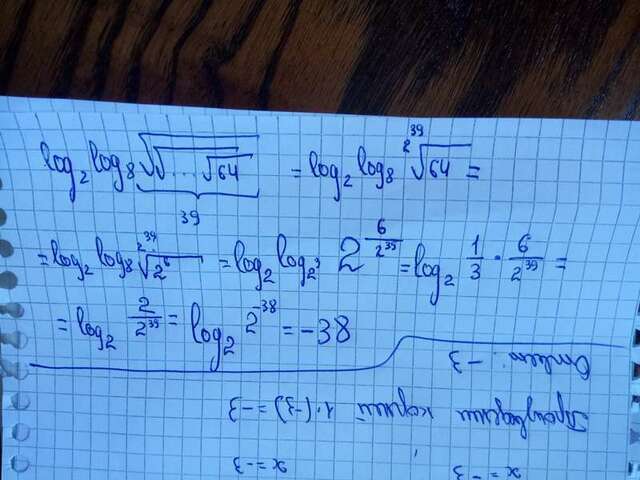 log₂ log₈ √√...√64 = log₂ log₈ ²^³⁹√64 =
39
= log₂ log₈ ²^³⁹√2⁶ = log₂ log₂³ 2^(6/2³⁹) = log₂ 1/3 · 6/2³⁹ =
= log₂ 2/2³⁹ = log₂ 2⁻³⁸ = -38
Ответ: -3
Произведение корней 1·(-3) = -3
x = -3 x = -3